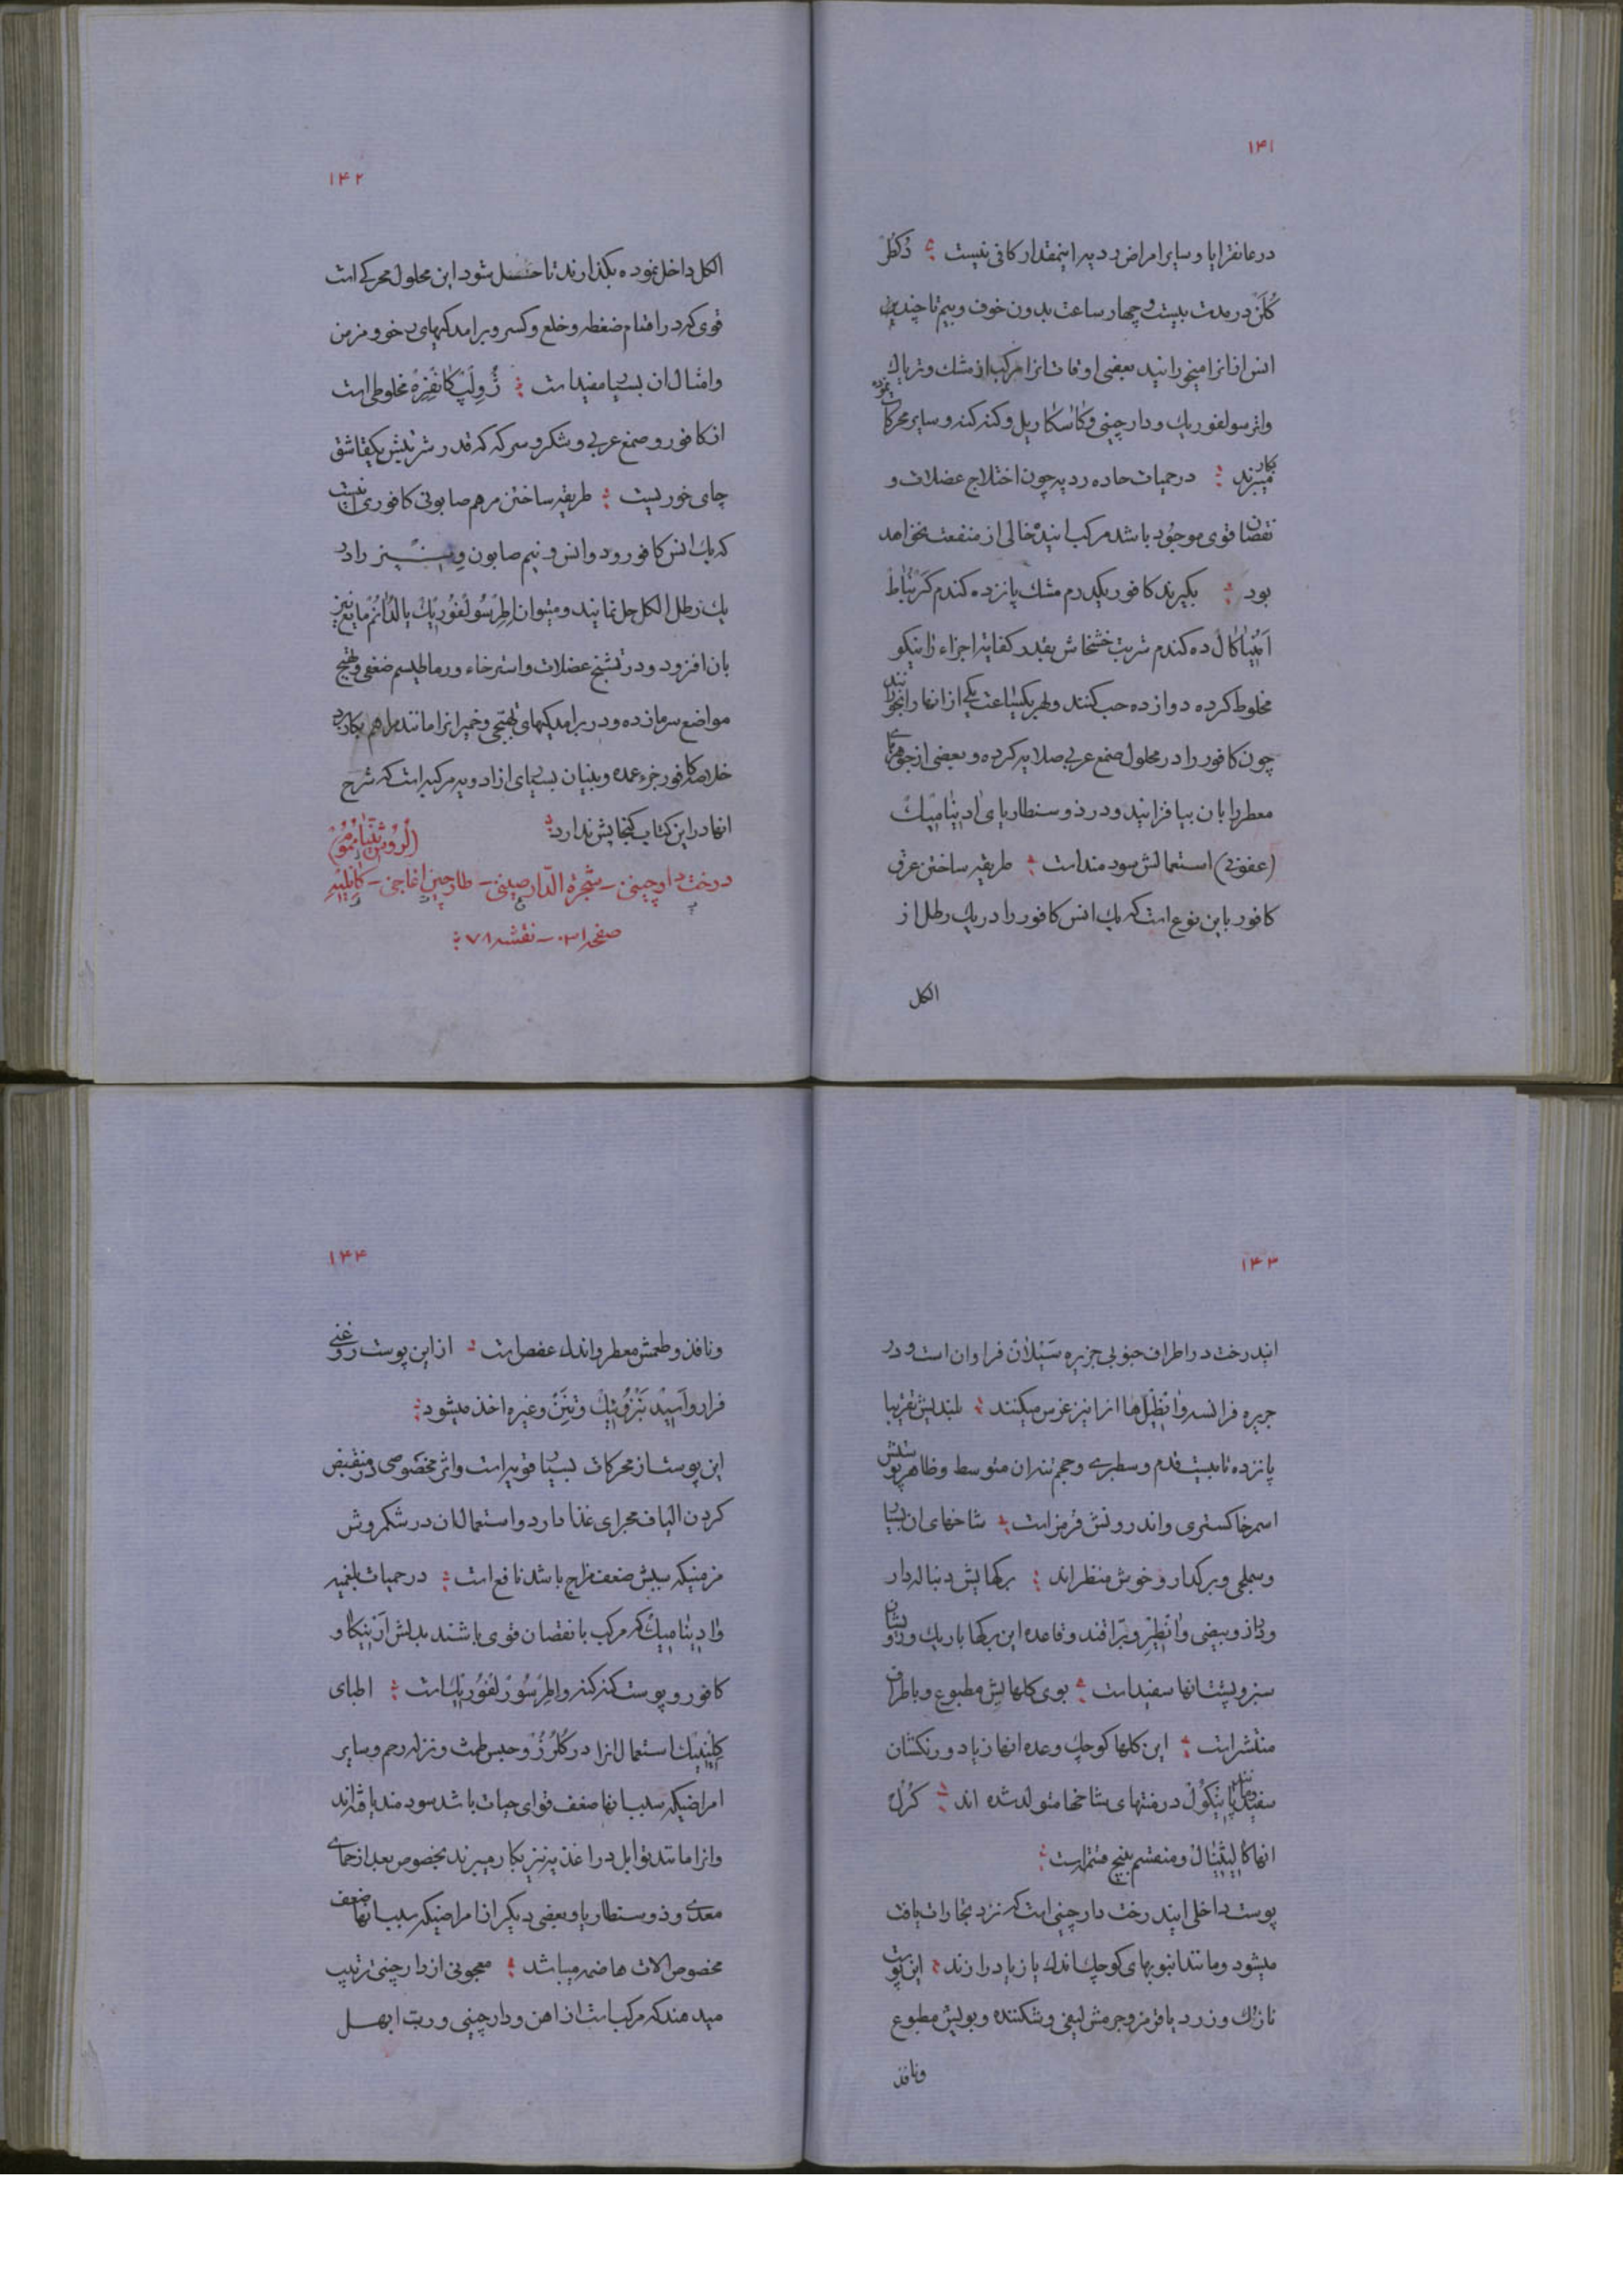 ۱۴۱
در غانغرایا و سایر امراض ردیه اینمقدار کافی نیست ؞ دُکطُرْ
کُلَنْ در مدت بیست و چهار ساعت بدون خوف و بیم تا چندین
انس انانرا میخورانید بعضی اوقات انرا مرکب از مشک و تریاک
واتر سولفوریک و دارچینی و کاسکاریل و کنه کنه و سایر محرکات نموده
بکار میبرند ؞ در حمیات حاده ردیه چون اختلاج عضلات و
نقصان قوی موجود باشد مرکب اینده خالی از منفعت نخواهد
بود ؞ بگیرند کافور یکدرم مشک پانزده کندم
ده کندم شربت خشخاش بقدر کفایه اجزاء را نیکو
مخلوط کرده دوازده حب کنند و هر یکساعت یکی از انها را بخورانند
چون کافور را در محلول صمغ عربی صلایه کرده و بعضی از جوهرهای
معطر را بان بیافزایند و در ذوسنطاریای ادینامیک
(عفونی) استعمالش سودمند است ؞ طریقه ساختن عرق
کافور باین نوع است که یک انس کافور را در یک رطل از
الکل
۱۴۲
الکل داخل نموده بگذارند تا حل شود این محلول محرکی است
قوی که در اقسام ضغطه و خلع و کسر و برامدگیهای رخو و مزمن
وامثال ان بسیار مفید است ؞ ژُولِپْ کانْفِرِهْ مخلوطی است
از کافور و صمغ عربی و شکر و سرکه که قدر شربتش یکقاشق
چای خوریست ؞ طریقه ساختن مرهم صابونی کافوری اینست
که یک انس کافور و دو انس و نیم صابون را در
یک رطل الکل حل نمایند و میتوان اطر سولفوریک یا لدانم مایع نیز
بان افزود و در تشنج عضلات و استرخاء و رماطیسم ضعفی و تهیج
مواضع سرمازده و در برامدگیهای تهبجی و خمیر انرا مانند مرهم بکار برد
خلاصه کافور جزء عمده و بنیان بسیاری از ادویه مرکبه است که شرح
انها در این کتاب گنجایش ندارد ؞
درخت دارچینی – شجرة الدّارصینی – طارچین اغاجی – کانلیه
صفحه ۳۱۰ – نقشه ۷۸ ؞
۱۴۳
ایندرخت در اطراف جنوبی جزیره سَیْلان فراوان است و در
جزیره فرانسه و انطیل‌ها انرا نیز غرس میکنند ؞ بلندیش تقریبا
پانزده تا بیست قدم و سطبری و حجم تنه ان متوسط و ظاهر پوستش
اسمر خاکستری و اندرونش قرمز است ؞ شاخهای ان بسیار
و سملجی و برگدار و خوش منظراند ؞ برگهایش دنباله دار
و دراز و بیضی و انطیر و براقند و قاعده این برگها باریک و رویشان
سبز و پشت انها سفید است ؞ بوی گلهایش مطبوع و باطراف
منتشر است ؞ این گلها کوچک و عده انها زیاد و رنگشان
سفید و مانند پانیکول در منتهای شاخها متولد شده اند ؞ کرل
انها کالیثینال و منقسم به پنج قسم است ؞
پوست داخلی ایندرخت دارچینی است که نزد تجارات یافت
میشود و مانند انبوبهای کوچک اندک یا زیاد درازند ؞ این پوست
نازک و زرد یا قرمز و جرمش لیفی و شکننده و بویش مطبوع
ونافذ
۱۴۴
ونافذ و طعمش معطر و اندک عفص است ؞ از این پوست روغنی
فرار و اسید بنزوئیک و تنن و غیره اخذ میشود ؞
این پوست از محرکات بسیار قویه است و اثر مخصوصی در منقبض
کردن الیاف مجرای غذا دارد و استعمال ان در شکم‌روش
مزمنیکه سببش ضعف مزاج باشد نافع است ؞ در حمیات بلغمیه
و ادینامیک که مرکب با نقصان قوی باشند بدلش ارنیکا و
کافور و پوست کنه کنه و اطر سولفوریک است ؞ اطبای
کلینیک استعمال انرا در کلرز و حبس طمث و نزله رحم و سایر
امراضیکه سبب انها ضعف قوای حیات باشد سودمند یافته‌اند
وانرا مانند توابل در اغذیه نیز بکار میبرند بخصوص بعد از حمای
معدی و ذوسنطاریا و بعضی دیگر از امراضیکه سبب انها ضعف
مخصوص الات هاضمه میباشد ؞ معجونی از دارچینی ترتیب
میدهند که مرکب است از اهن و دارچینی و ربّ ابهل